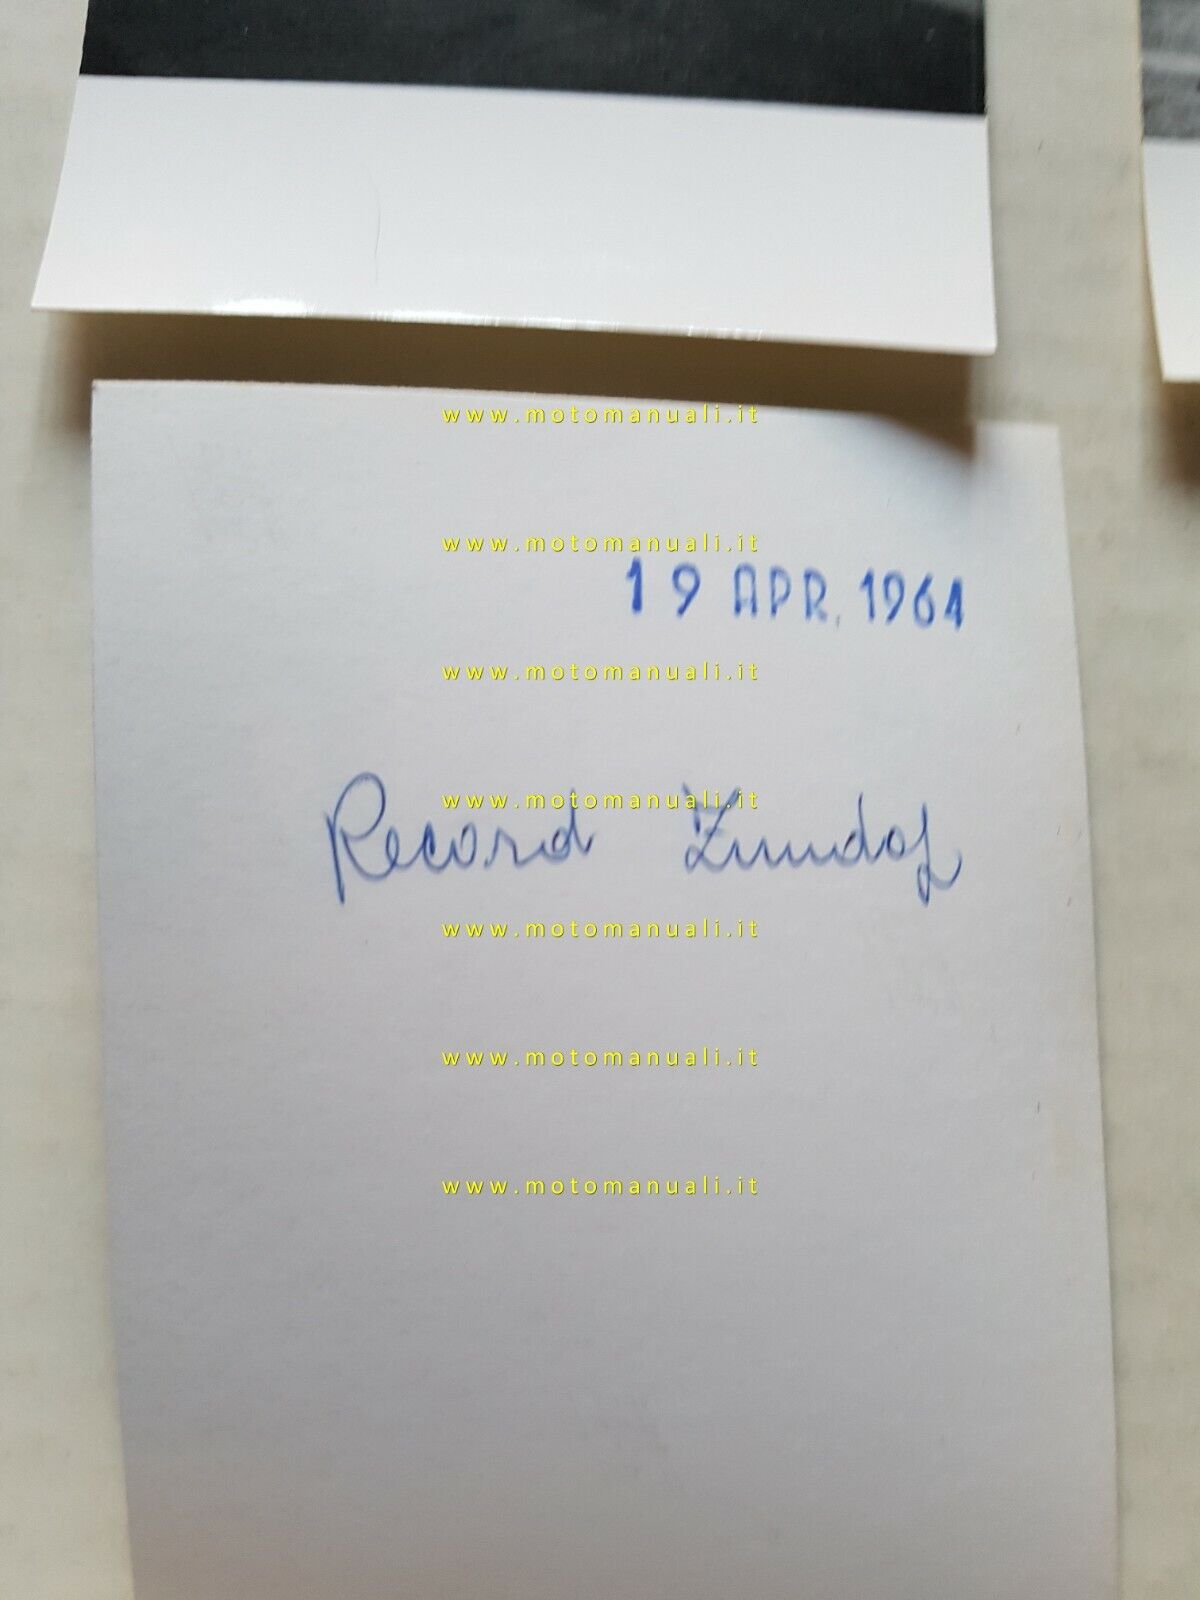 www.motomanuali.it
www.motomanuali.it
19 APR. 1964
www.motomanuali.it
www.motomanuali.it
Record Zundap
www.motomanuali.it
www.motomanuali.it
www.motomanuali.it